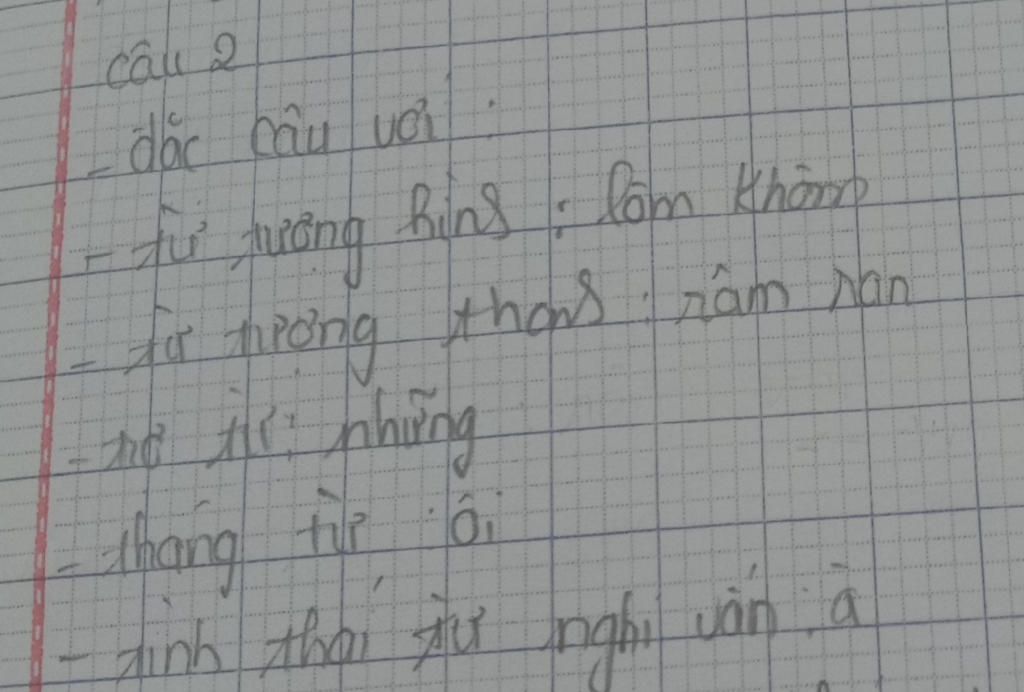 Câu 2
- đặc câu với :
- từ tượng hình : lom khom
- từ tượng thanh : râm ran
- trợ từ : những
- tháng từ : ôi
- tình thái từ nghi vấn : à